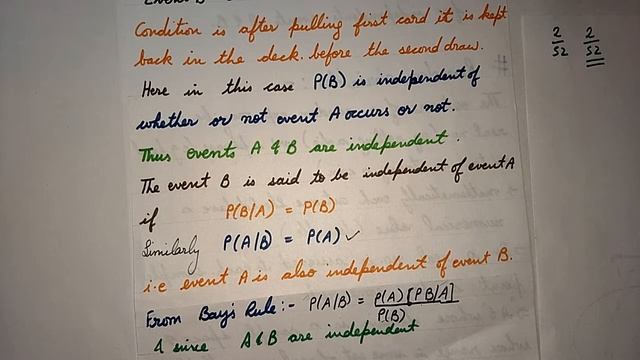 Condition is after pulling first card it is kept
back in the deck. before the second draw.
Here in this case P(B) is independent of
whether or not event A occurs or not.
Thus events A & B are independent.
The event B is said to be independent of event A
if P(B/A) = P(B)
Similarly P(A/B) = P(A) ✓
i.e event A is also independent of event B.
From Bay's Rule:- P(A/B) = P(A)[PB/A]
P(B)
& since A & B are independent
2 2
52 52